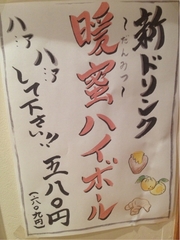 新ドリンク
～だんみつ～
暖蜜ハイボール
ハァハァ…
して下さい!!
五八〇円
(六〇九円)